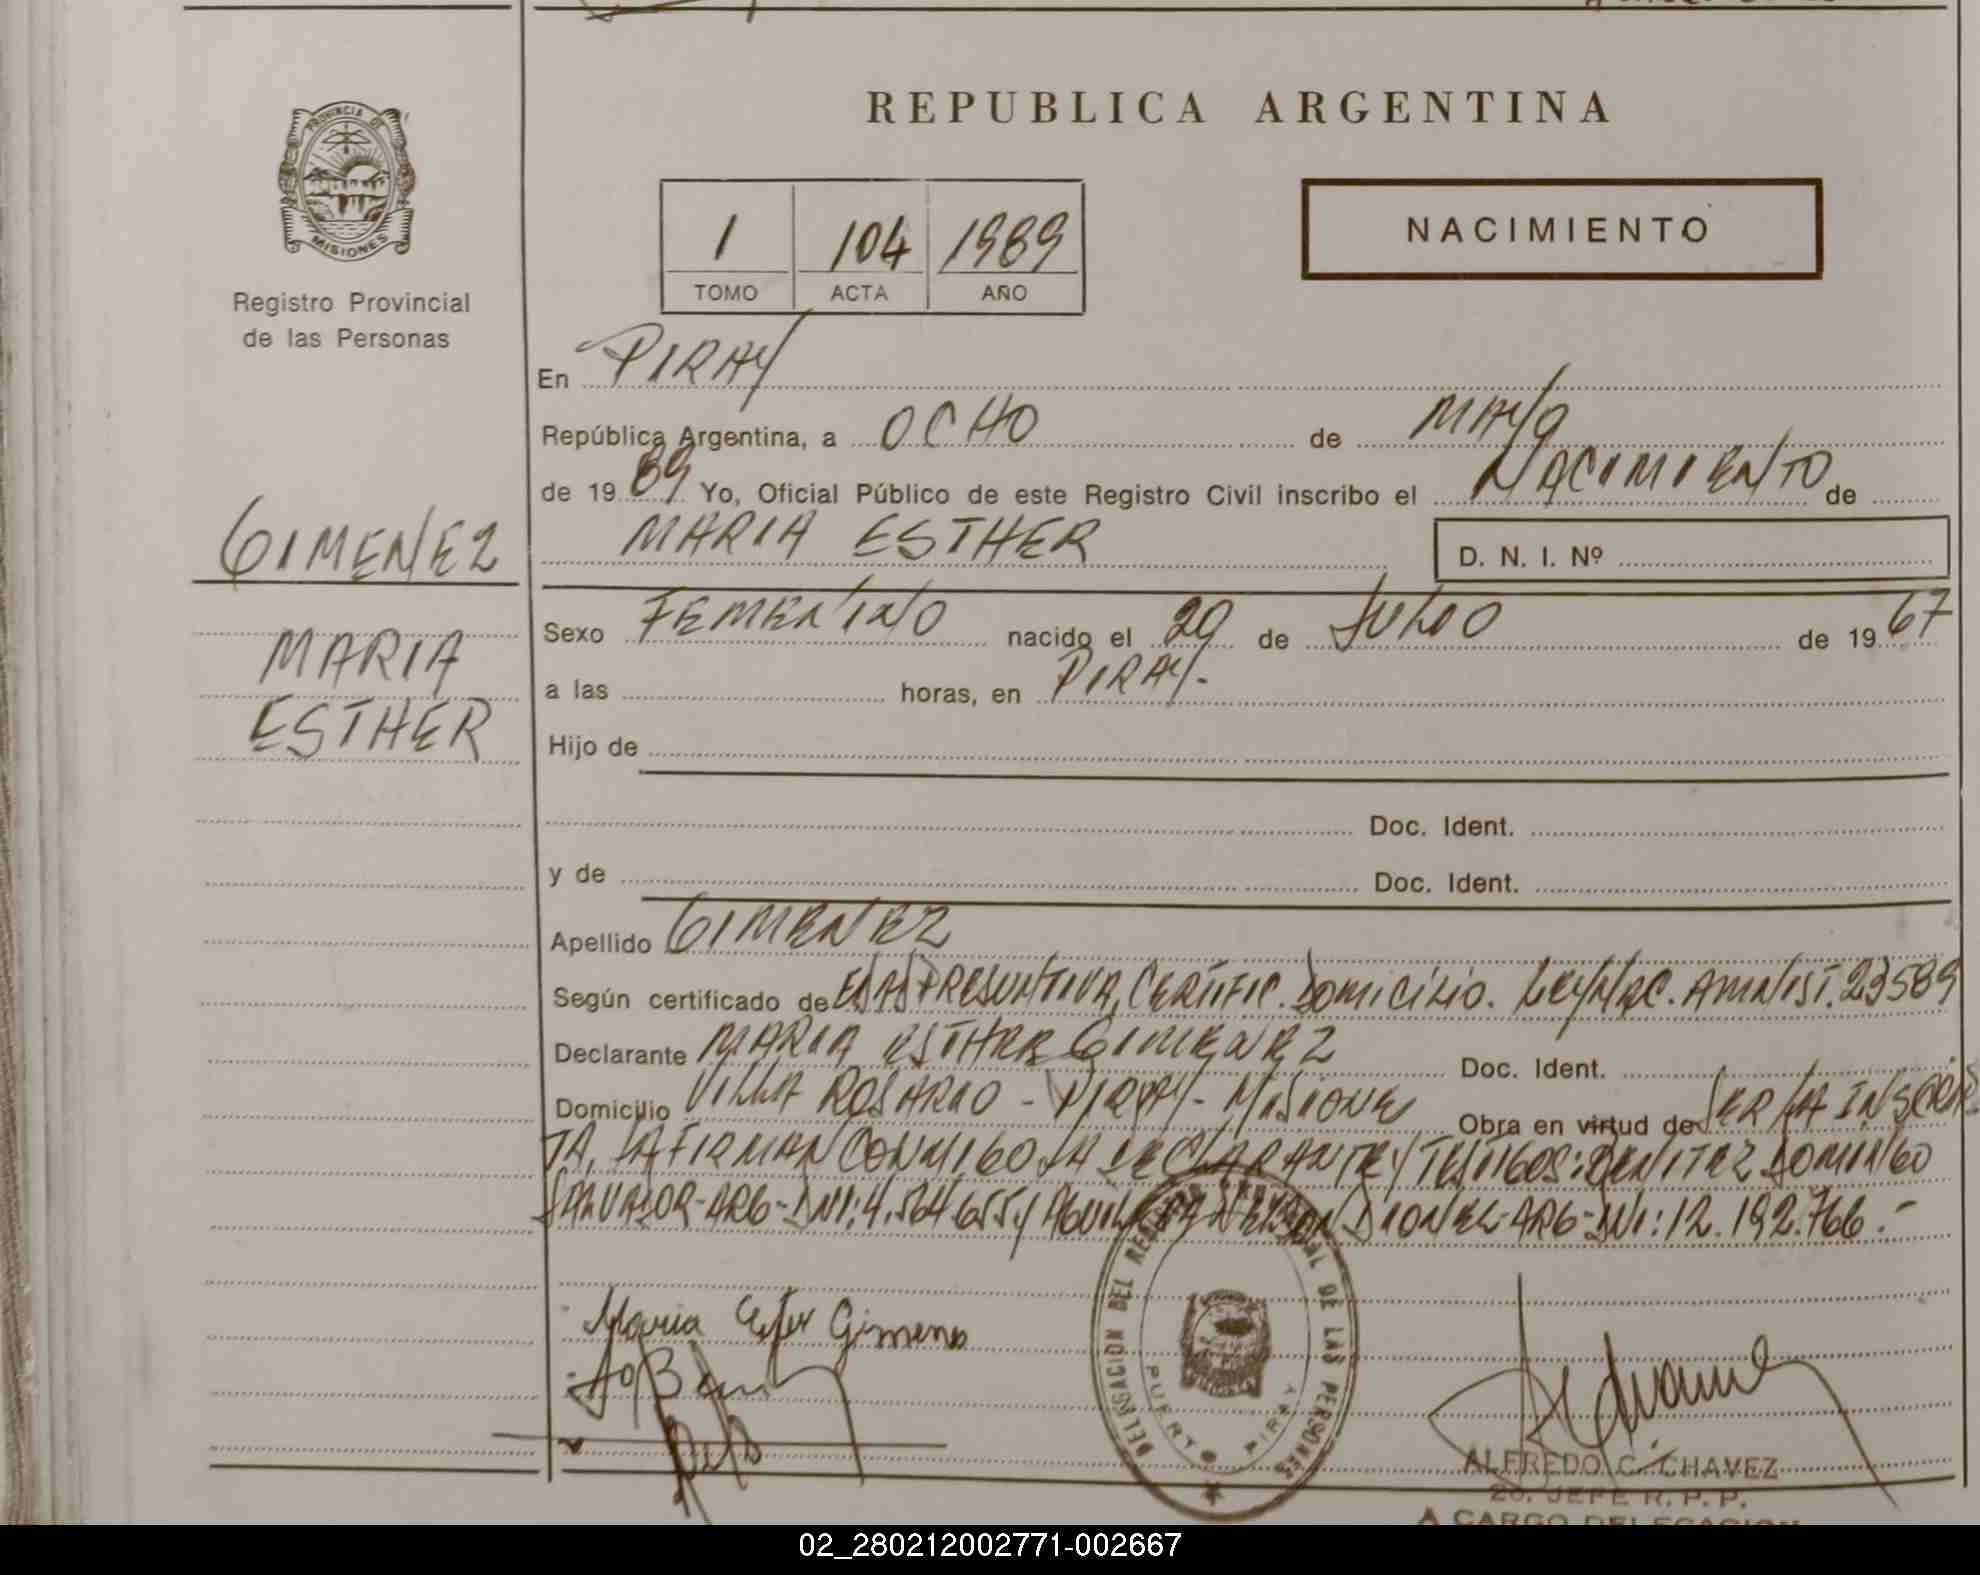 REPUBLICA ARGENTINA
PROVINCIA DE
MISIONES
Registro Provincial
de las Personas
1 104 1989
TOMO ACTA AÑO
NACIMIENTO
En PIRAY
República Argentina, a OCHO de MAYO
de 1989 Yo, Oficial Público de este Registro Civil inscribo el NACIMIENTO de
MARIA ESTHER D. N. I. Nº
GIMENEZ
MARIA
ESTHER
Sexo FEMENINO nacido el 29 de JULIO de 1967
a las horas, en PIRAY.-
Hijo de
Doc. Ident.
y de Doc. Ident.
Apellido GIMENEZ
Según certificado de EDAD PRESUNTIVA, CERTIFIC. DOMICILIO. LEY NAC. AMNIST. 23589
Declarante MARIA ESTHER GIMENEZ Doc. Ident.
Domicilio VILLA ROSARIO - PIRAY - MISIONE Obra en virtud de SER LA INSCRIP
TA, LA FIRMAN CONMIGO LA DECLARANTE Y TESTIGOS: BENITEZ DOMINGO
SALVADOR-ARG-DNI: 4.564655 y DIONEL-ARG-DNI: 12.192.766.-
Maria Ester Gimenes
DELEGACION DEL REGISTRO PROVINCIAL DE LAS PERSONAS
PUERTO PIRAY
ALFREDO C. CHAVEZ
2o. JEFE R. P. P.
A CARGO DELEGACION
02_280212002771-002667